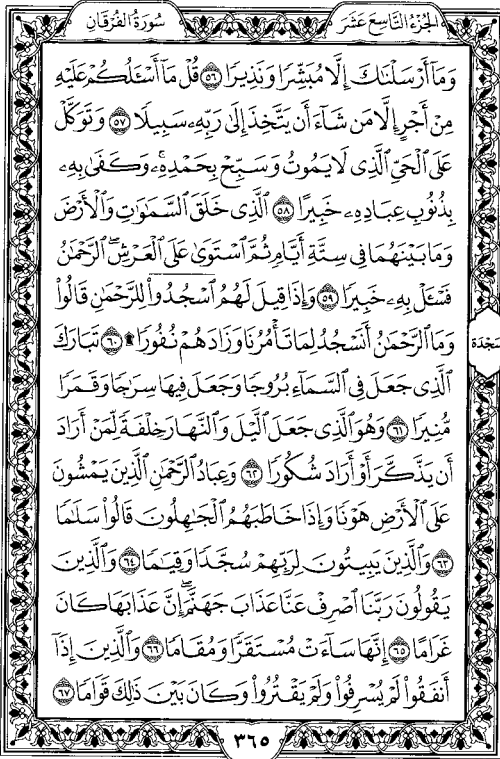 سُورَةُ الفُرْقَانِ
الجُزْءُ التَّاسِعَ عَشَرَ
وَمَآ أَرْسَلْنَٰكَ إِلَّا مُبَشِّرًا وَنَذِيرًا ﴿٥٦﴾ قُلْ مَآ أَسْـَٔلُكُمْ عَلَيْهِ
مِنْ أَجْرٍ إِلَّا مَن شَآءَ أَن يَتَّخِذَ إِلَىٰ رَبِّهِۦ سَبِيلًا ﴿٥٧﴾ وَتَوَكَّلْ
عَلَى ٱلْحَىِّ ٱلَّذِى لَا يَمُوتُ وَسَبِّحْ بِحَمْدِهِۦۚ وَكَفَىٰ بِهِۦ
بِذُنُوبِ عِبَادِهِۦ خَبِيرًا ﴿٥٨﴾ ٱلَّذِى خَلَقَ ٱلسَّمَٰوَٰتِ وَٱلْأَرْضَ
وَمَا بَيْنَهُمَا فِى سِتَّةِ أَيَّامٍ ثُمَّ ٱسْتَوَىٰ عَلَى ٱلْعَرْشِۖ ٱلرَّحْمَٰنُ
فَسْـَٔلْ بِهِۦ خَبِيرًا ﴿٥٩﴾ وَإِذَا قِيلَ لَهُمُ ٱسْجُدُوا۟ لِلرَّحْمَٰنِ قَالُوا۟
وَمَا ٱلرَّحْمَٰنُ أَنَسْجُدُ لِمَا تَأْمُرُنَا وَزَادَهُمْ نُفُورًا ۩ ﴿٦٠﴾ تَبَارَكَ
سَجْدَة
ٱلَّذِى جَعَلَ فِى ٱلسَّمَآءِ بُرُوجًا وَجَعَلَ فِيهَا سِرَٰجًا وَقَمَرًا
مُّنِيرًا ﴿٦١﴾ وَهُوَ ٱلَّذِى جَعَلَ ٱلَّيْلَ وَٱلنَّهَارَ خِلْفَةً لِّمَنْ أَرَادَ
أَن يَذَّكَّرَ أَوْ أَرَادَ شُكُورًا ﴿٦٢﴾ وَعِبَادُ ٱلرَّحْمَٰنِ ٱلَّذِينَ يَمْشُونَ
عَلَى ٱلْأَرْضِ هَوْنًا وَإِذَا خَاطَبَهُمُ ٱلْجَٰهِلُونَ قَالُوا۟ سَلَٰمًا
﴿٦٣﴾ وَٱلَّذِينَ يَبِيتُونَ لِرَبِّهِمْ سُجَّدًا وَقِيَٰمًا ﴿٦٤﴾ وَٱلَّذِينَ
يَقُولُونَ رَبَّنَا ٱصْرِفْ عَنَّا عَذَابَ جَهَنَّمَۖ إِنَّ عَذَابَهَا كَانَ
غَرَامًا ﴿٦٥﴾ إِنَّهَا سَآءَتْ مُسْتَقَرًّا وَمُقَامًا ﴿٦٦﴾ وَٱلَّذِينَ إِذَآ
أَنفَقُوا۟ لَمْ يُسْرِفُوا۟ وَلَمْ يَقْتُرُوا۟ وَكَانَ بَيْنَ ذَٰلِكَ قَوَامًا ﴿٦٧﴾
٣٦٥